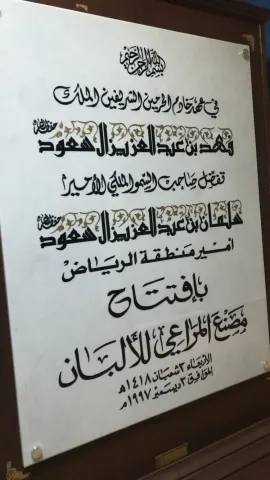 بسم الله الرحمن الرحيم
في عهد خادم الحرمين الشريفين الملك
فهد بن عبد العزيز آل سعود حفظه الله
تفضل صاحب السمو الملكي الأمير
سلمان بن عبد العزيز آل سعود حفظه الله
أمير منطقة الرياض
بإفتتاح
مصنع المراعي للألبان
الأربعاء ٣ شعبان ١٤١٨هـ
الموافق ٣ ديسمبر ١٩٩٧م